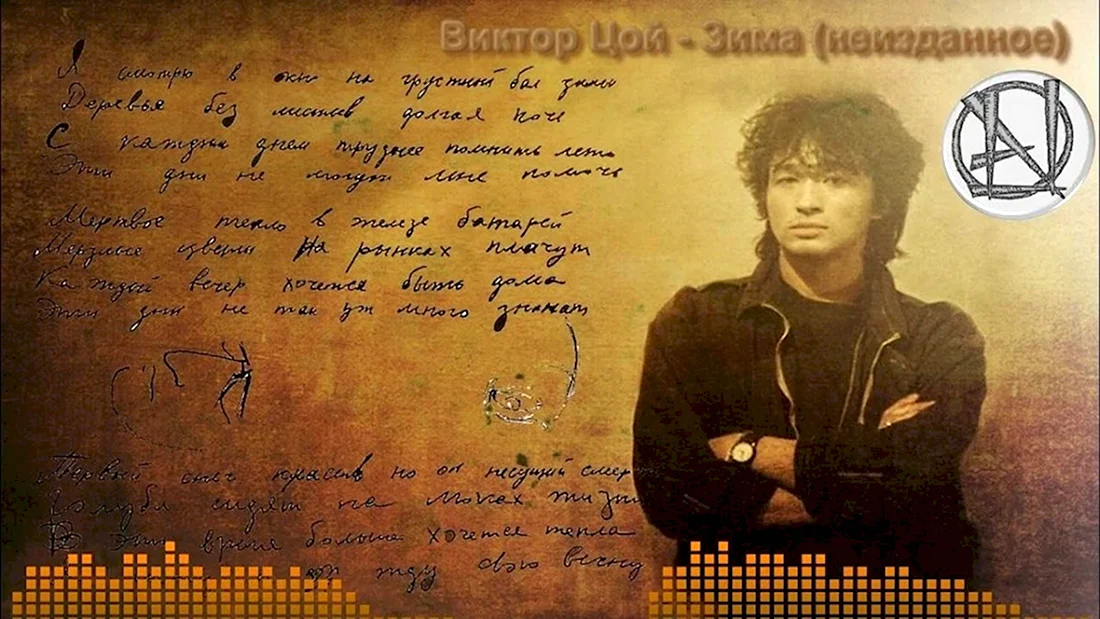 Виктор Цой - Зима (неизданное)
Я смотрю в окно на грустный бал зимы
Деревья без листьев долгая ночь
С каждым днем труднее помнить лето
Эти дни не могут мне помочь
Мертвое тепло в железе батарей
Мерзлые цветы на рынках плачут
Каждый вечер хочется быть дома
Эти дни не так уж много значат
Первый снег красив но он несущий смерть
Голуби сидят на люках
В это время больше хочется тепла
жду свою весну